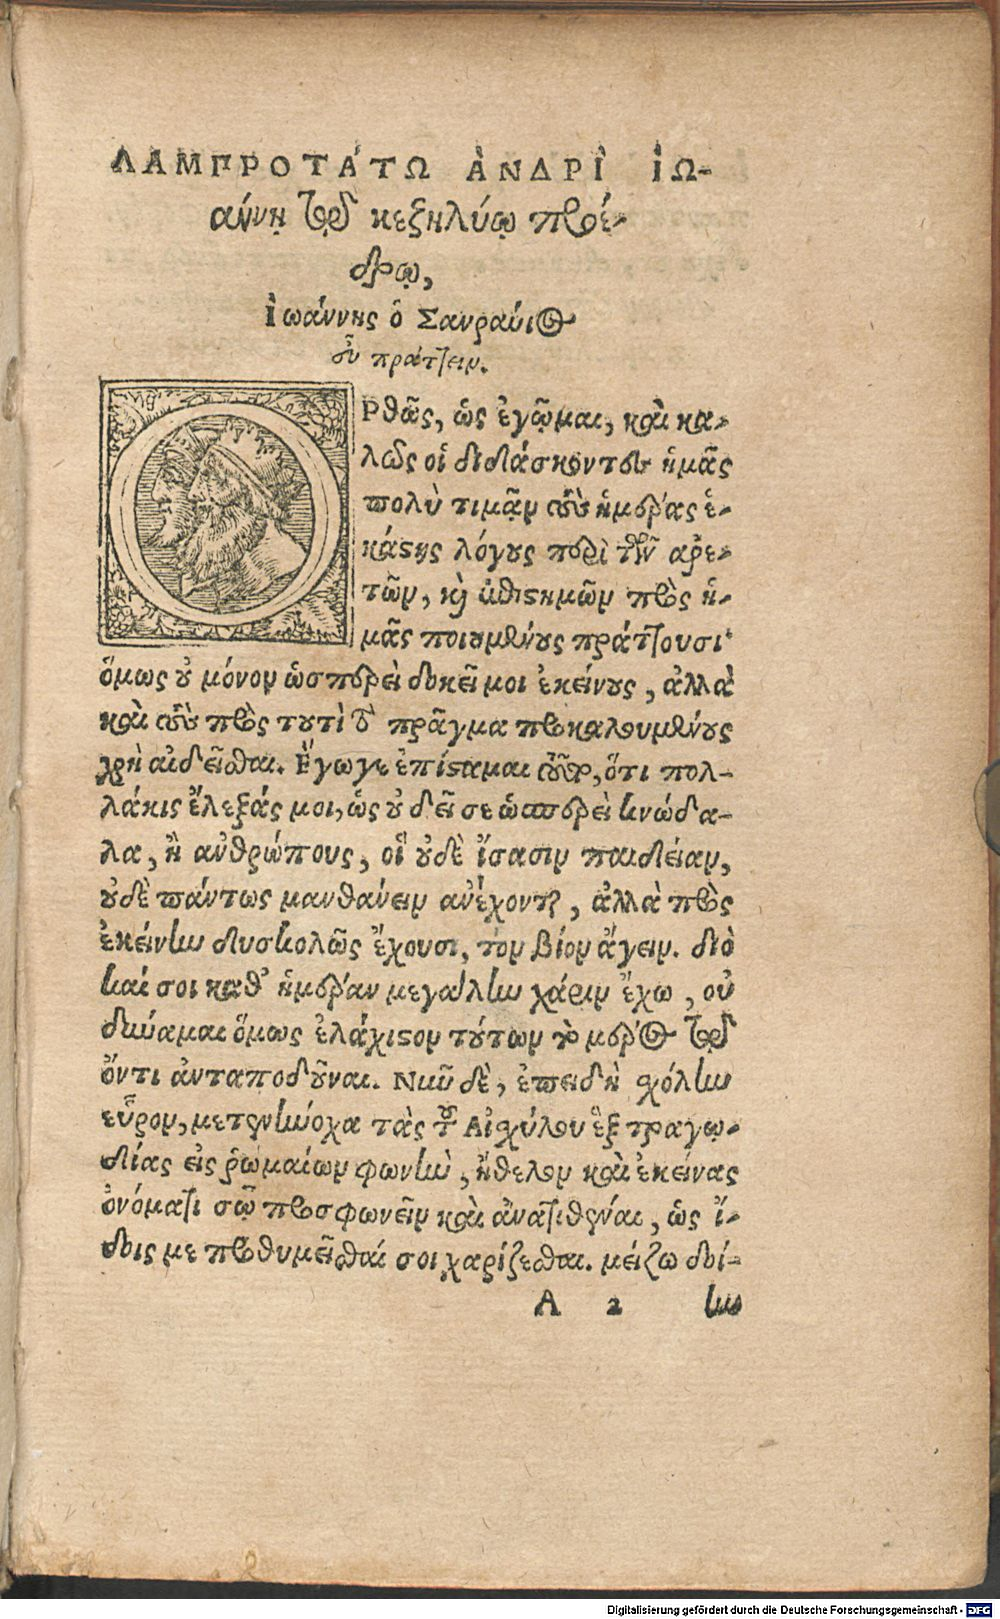 ΛΑΜΠΡΟΤΆΤΩ ἈΝΔΡῚ ἸΩ-
άννῃ τῷ κεξηλύῳ προέ-
δρῳ,
Ἰωάννης ὁ Σανραύιος
εὖ πράττειν.
ΟΡθῶς, ὡς ἐγᾦμαι, καὶ κα-
λῶς οἱ διδάσκοντες ἡμᾶς
πολὺ τιμᾷν τοὺς ἡμέρας ἑ-
κάστης λόγους περὶ τῶν ἀρε-
τῶν, καὶ ἐπιστημῶν πρὸς ἡ-
μᾶς ποιουμένους πράττουσι·
ὅμως οὐ μόνον ὡσπερεὶ δοκεῖ μοι ἐκείνους, ἀλλὰ
καὶ τοὺς πρὸς τουτὶ τὸ πρᾶγμα προκαλουμένους
χρὴ αἰδεῖσθαι. Ἔγωγε ἐπίσταμαι οὖν, ὅτι πολ-
λάκις ἔλεξάς μοι, ὡς οὐ δεῖ σε ὡσπερεὶ κνώδα-
λα, ἢ ἀνθρώπους, οἳ οὐδὲ ἴσασιν παιδείαν,
οὐδὲ πάντως μανθάνειν ἀνέχονται, ἀλλὰ πρὸς
ἐκείνην δυσκολῶς ἔχουσι, τὸν βίον ἄγειν. διὸ
καί σοι καθ' ἡμέραν μεγάλην χάριν ἔχω, οὐ
δύναμαι ὅμως ἐλάχιστον τούτων τὸ μέρος τῷ
ὄντι ἀνταποδοῦναι. Νῦν δὲ, ἐπειδὴ σχόλην
εὗρον, μετενήνοχα τὰς τοῦ Αἰσχύλου ἓξ τραγῳ-
δίας εἰς ῥωμαίων φωνὴν, ἤθελον καὶ ἐκείνας
ὀνόματι σῷ προσφωνεῖν καὶ ἀνατιθέναι, ὡς ἴ-
δοις με προθυμεῖσθαί σοι χαρίζεσθαι. μείζω δοί-
A 2 ην
Digitalisierung gefördert durch die Deutsche Forschungsgemeinschaft - DFG